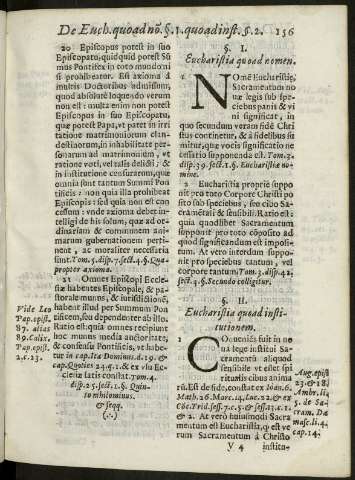 De Euch. quoad nō. §. 1. quoad inst. §. 2. 156
20 Episcopus potest in suo
Episcopatu, quidquid potest Sũ
mus Pontifex in toto mundo ni
si prohibeatur. Est axioma à
multis Doctoribus admissum,
quod absolutè loquendo verum
non est: multa enim non potest
Episcopus in suo Episcopatu,
quę potest Papa, vt patet in irri
tatione matrimoniorum clan-
destinorum, in inhabilitate per
sonarum ad matrimonium, vt
ratione voti, vel talis delicti; &
in institutione censurarum, quę
omnia sunt tantum Summi Pon
tificis: non quia illa prohibeat
Episcopis: sed quia non est con
cessum: vnde axioma debet in-
telligi de his solum, quæ ad or-
dinariam & communem anima
rum gubernationem perti-
nent, ac moraliter necessaria
sunt. Tom. 5. disp. 7. sect. 4. §. Qua-
propter axioma.
21 Omnes Episcopi Eccle-
siæ habentes Episcopale, & pa-
storale munus, & iurisdictionē,
habent illud per Summum Pon
tificem, seu dependenter ab illo.
Ratio est: quia omnes recipiunt
hoc munus media auctoritate,
& consensu Pontificis, vt habe-
tur in cap. Ita Dominus. d. 19. &
cap. Quoties 24. q. 1. & ex vsu Ec-
clesiæ latis constat. Tom. 4.
disp. 25. sect. 1. §. Quin-
to nihilominus.
& seqq.
(.·.)
Vide Leo
Pap. epist.
87. alias
89. Calix.
Pap. epist.
2. c. 23.
§. I.
Eucharistia quoad nomen.
1 NOmē Eucharistię,
Sacramentum no
uæ legis sub spe-
ciebus panis & vi
ni significat, in
quo secundum veram fidē Chri
stus continetur, & à fidelibus su
mitur, quæ vocis significatio ne
cessariò supponenda est. Tom. 3.
disp. 39. sect. 1. §. Eucharistiæ no-
mine.
2 Eucharistia propriè suppo
nit pro toto Corpore Christi po
sito sub speciebus, seu cibo Sa-
cramētali & sensibili. Ratio est:
quia quodlibet Sacramentum
supponit pro toto cōposito ad
quod significandum est imposi-
tum. At verò interdum suppo-
nit pro speciebus tantum, vel
corpore tantum. Tom. 3. disp. 42,
sect. 3. §. Secundo colligitur.
§. II.
Eucharistia quoad insti-
tutionem.
1 COnueniēs fuit in no
ua lege institui Sa-
cramentū aliquod
sensibile vt esset spi
ritualis cibus anima
rū. Est de fide, constat ex Ioan. 6.
Math. 26. Marc. 14. Luc. 22. & ex
Cōc. Trid. sess. 7. c. 5 & sess. 13. c. 1.
& 2. At verò huiusmodi Sacra
mentum est Eucharistia, q̄ est ve
rum Sacramentum à Christo
Aug. epist.
23. & 18.
Ambr. li.
5. de Sa-
cram. Da
masc. li. 4.
cap. 14.
Y 4 institu-